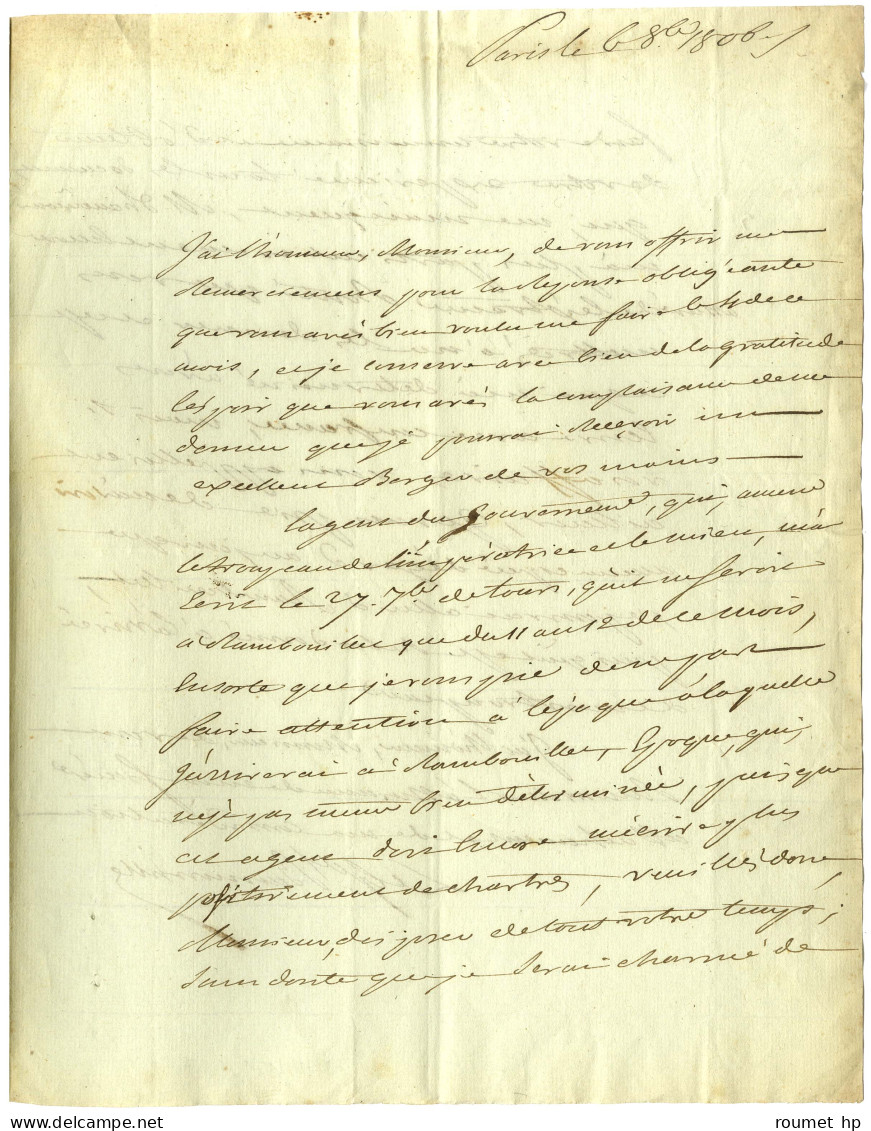 Paris le 6 8bre 1806
J'ai l'honneur, Monsieur, de vous offrir me
Remerciemens pour la Reponse obligéante
que vous avés bien voulu me faire le 4 de ce
mois, et je conserve avec bien de la gratitude
l'espoir que vous avés la complaisance de me
donner que je pourrai Recevoir un
excellent Berger de vos mains
L'agent du Gouvernemt, qui, amene
le troupeau de l'impératrice et le mien, m'a
Ecrit le 27. 7bre de tours, qu'il ne Seroit
à Rambouillet que du 11 au 12 de ce mois,
Ensorte que je vous prie de ne pas
faire attention à l'époque à laquelle
J'arriverai à Rambouillet, Epoque, qui,
n'est pas meme bien déterminée, puisque
cet agent doit Encore m'écrire plus
positivement de chartres, veuillés donc,
Monsieur, disposer de tout votre temps;
Sans doute que je Serai charmé de
roumet hp
www.delcampe.net